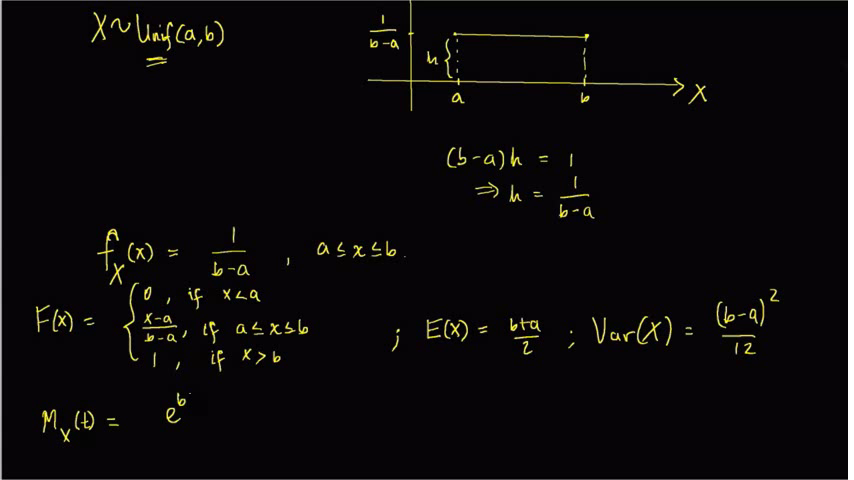 X ~ Unif(a,b)
1/(b-a)
h {
a b X
(b-a)h = 1
⇒ h = 1/(b-a)
f_X(x) = 1/(b-a) , a ≤ x ≤ b.
F(x) = { 0 , if x < a
(x-a)/(b-a) , if a ≤ x ≤ b
1 , if x > b
; E(X) = (b+a)/2 ; Var(X) = (b-a)^2/12
M_X(t) = e^b